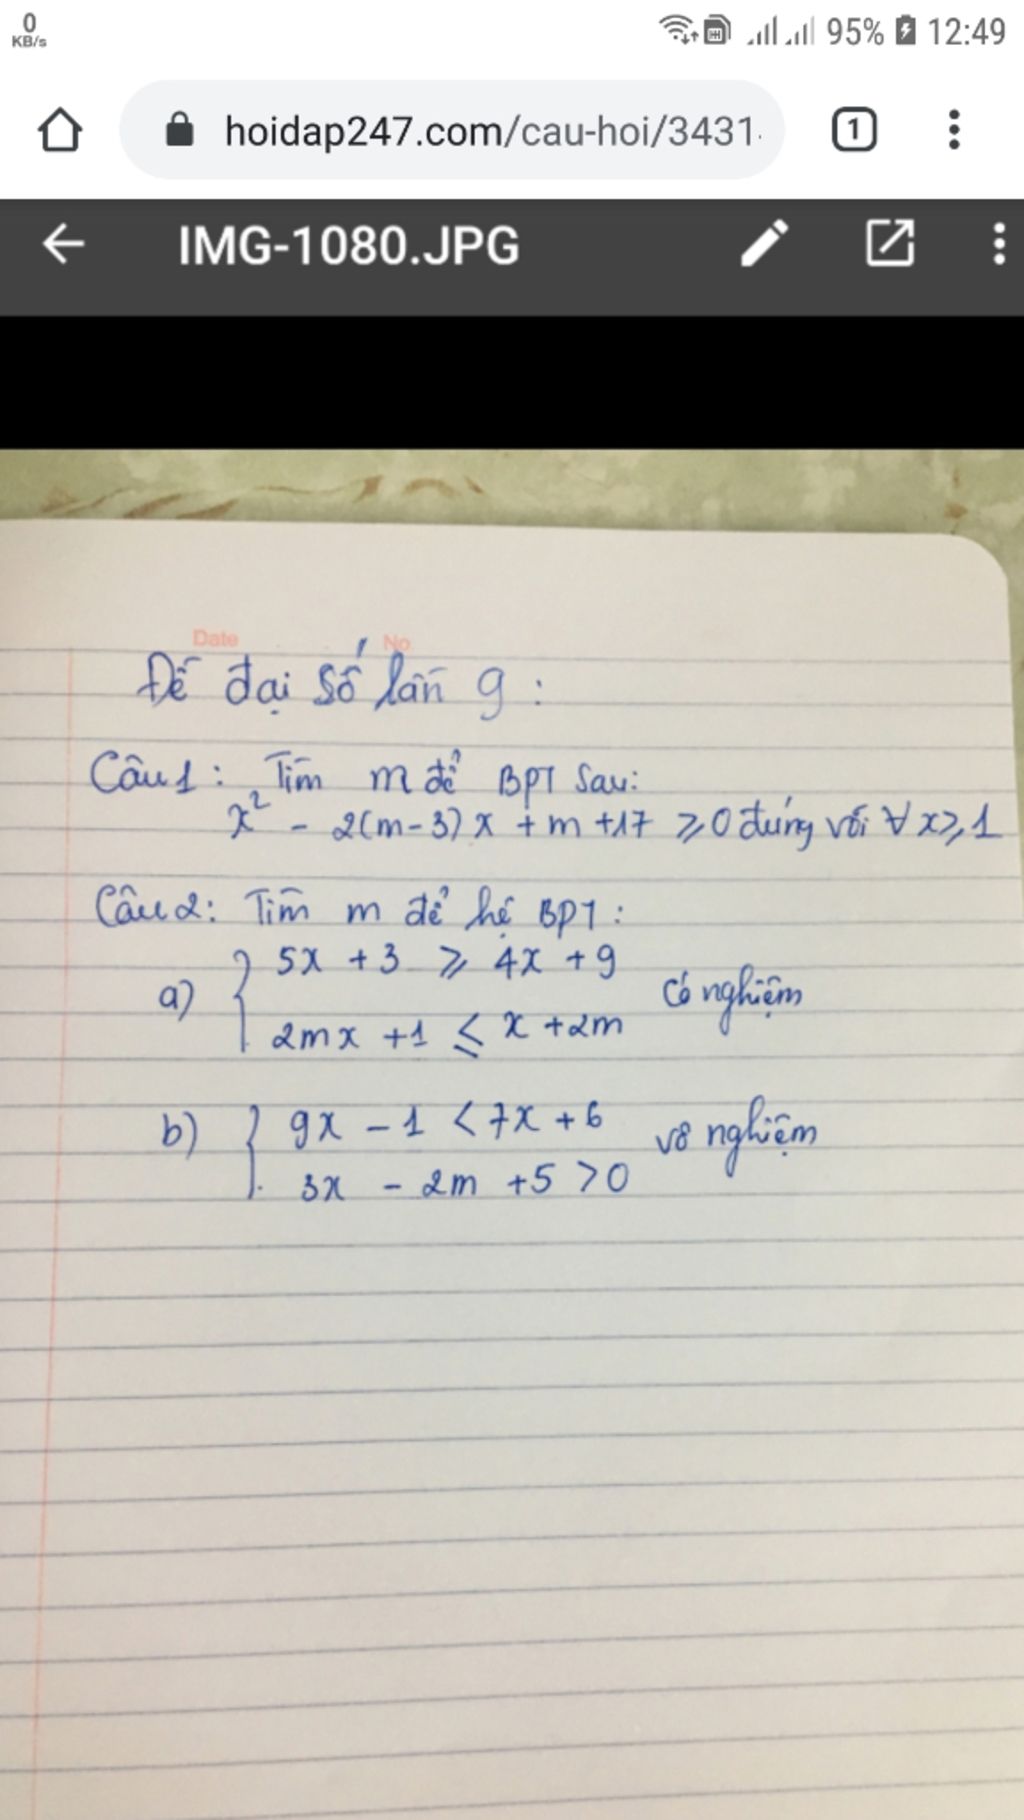 0
KB/s
95%
12:49
hoidap247.com/cau-hoi/3431
1
IMG-1080.JPG
Date
No
Đề đại số lần 9:
Câu 1: Tìm m để BPT sau:
x² - 2(m-3)x + m + 17 ⩾ 0 đúng với ∀x⩾1
Câu 2: Tìm m để hệ BPT:
a) { 5x + 3 ⩾ 4x + 9
2mx + 1 ≤ x + 2m
Có nghiệm
b) { 9x - 1 < 7x + 6
3x - 2m + 5 > 0
vô nghiệm